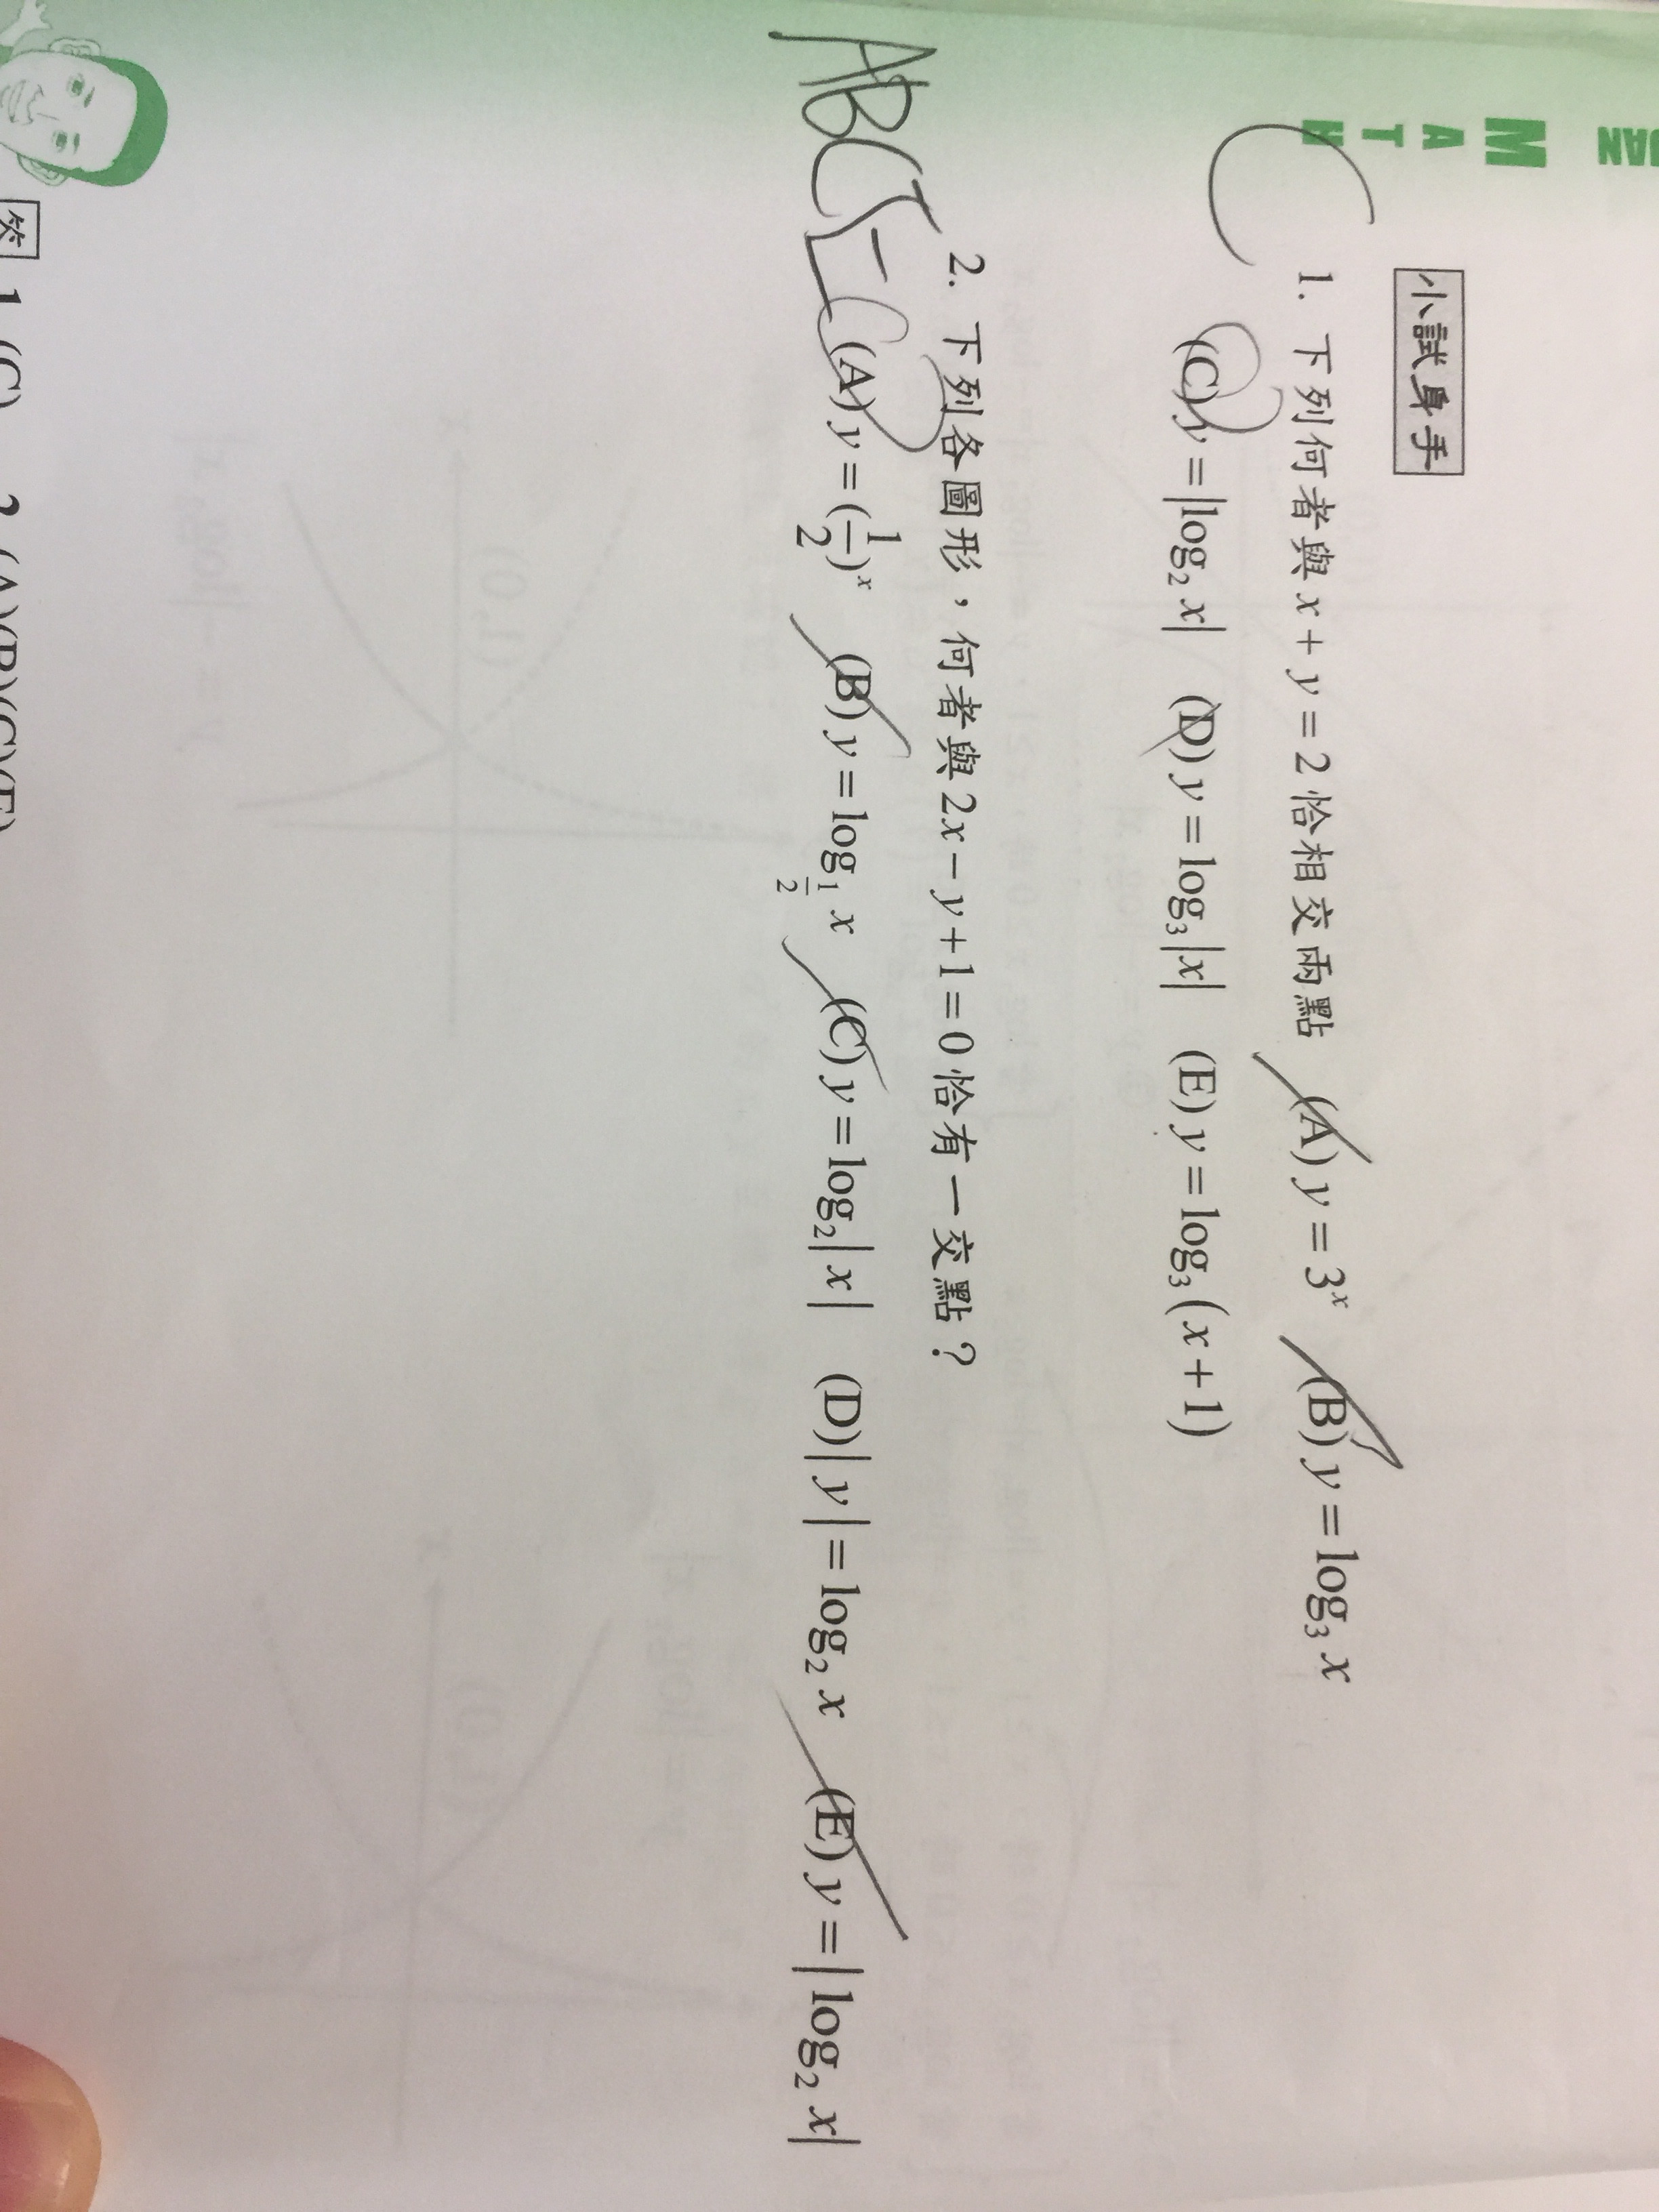 UAN
M A T H
小試身手
C
1. 下列何者與 x + y = 2 恰相交兩點 (A) y = 3^x (B) y = log_3 x
(C) y = |log_2 x| (D) y = log_3 |x| (E) y = log_3 (x + 1)
2. 下列各圖形，何者與 2x − y + 1 = 0 恰有一交點？
ABCE
(A) y = (1/2)^x (B) y = log_{1/2} x (C) y = log_2 | x | (D) | y | = log_2 x (E) y = | log_2 x |
答 1. (C) 2. (A)(B)(C)(E)